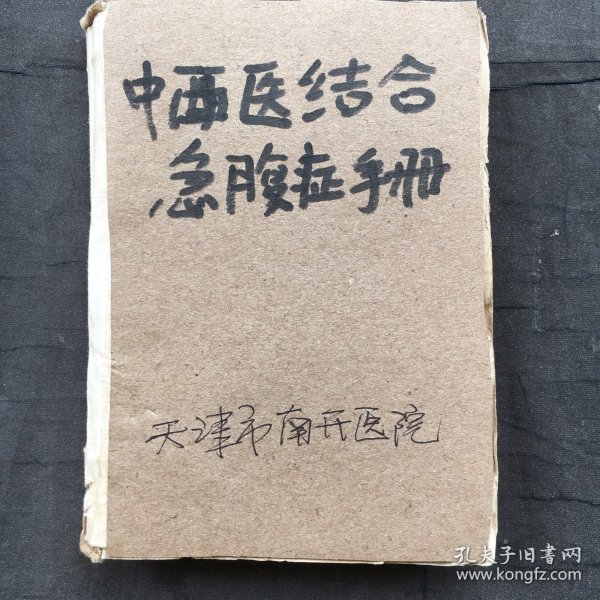 中西医结合
急腹症手册
天津市南开医院
孔夫子旧書网
www.kongfz.com